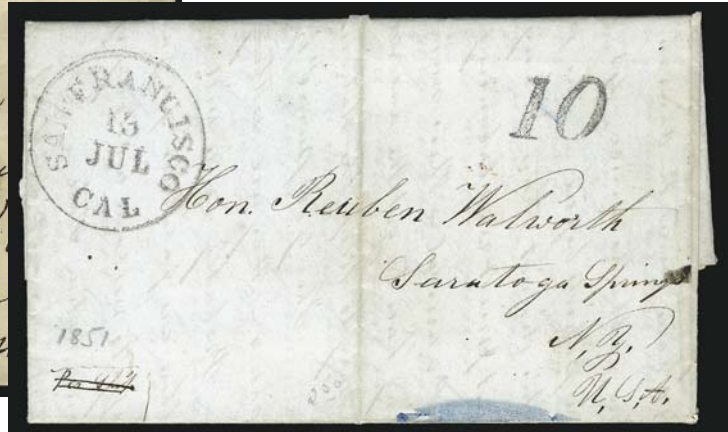 SAN FRANCISCO
15
JUL
CAL
10
Hon. Reuben Walworth
Saratoga Springs
N.Y.
U.S.A.
1851
Per Ship